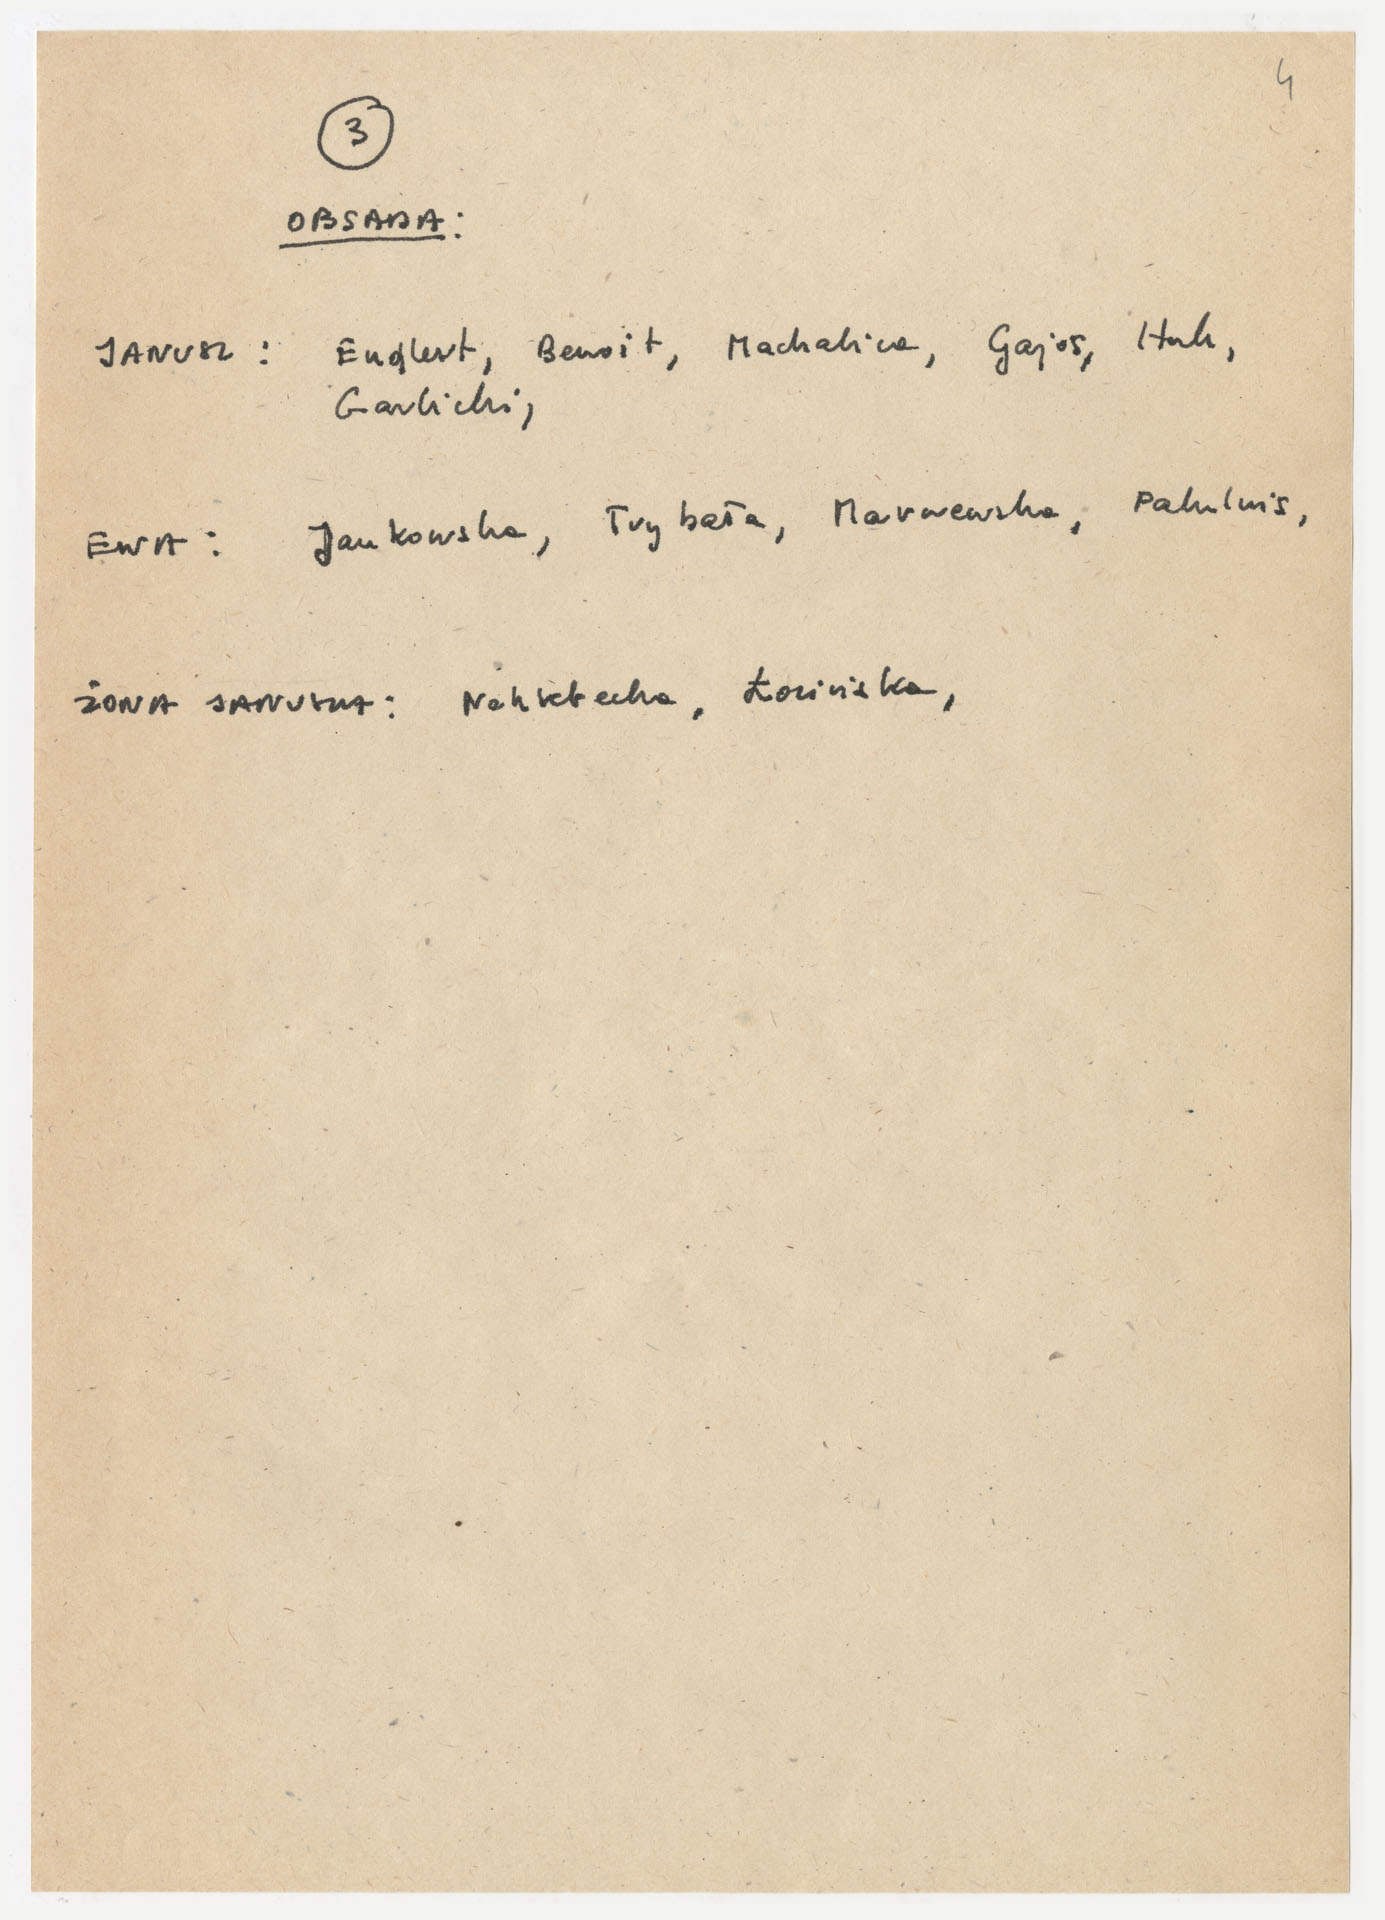 4
3
OBSADA:
JANUSZ: Englert, Benoit, Machalica, Gajos, Huk,
Garlicki,
EWA: Jankowska, Trybała, Marwewska, Pakulnis,
ŻONA JANUSZA: